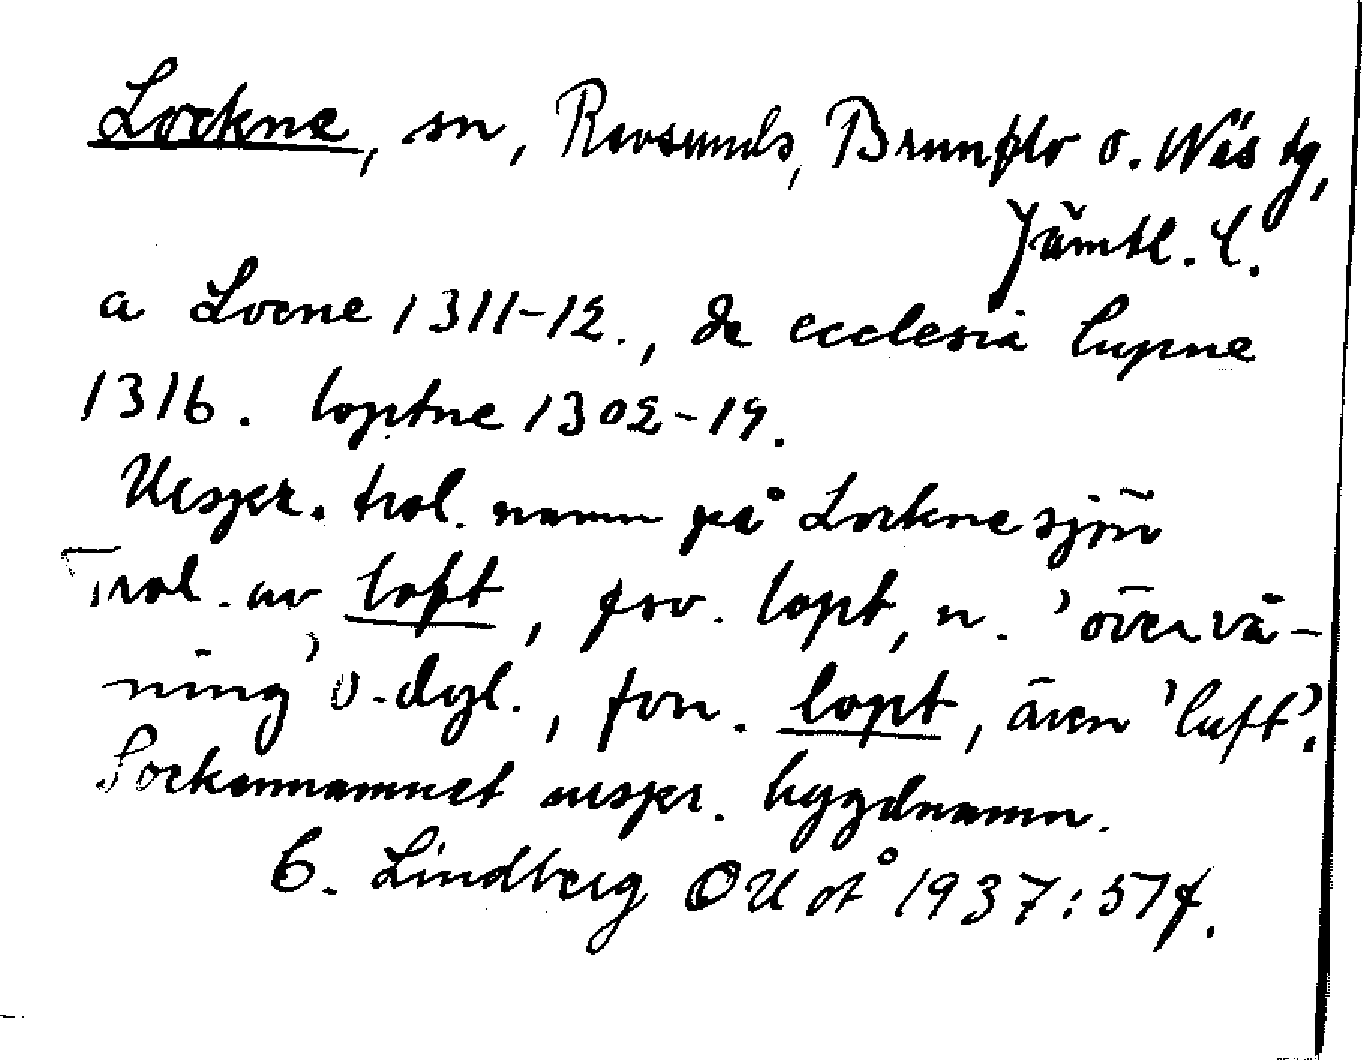 Lockne, sn, Revsunds, Brunflo o. Näs tg,
Jämtl. l.
a Locne 1311-12., de ecclesia lupne
1316. loptne 1302-19.
Urspr. trol. namn på Locknesjön
Trol. av loft, fsv. lopt, n. 'övervå-
ning' o. dyl., fvn. lopt, även 'luft'.
Sockennamnet urspr. bygdnamn.
C. Lindberg OUÅ 1937:57f.